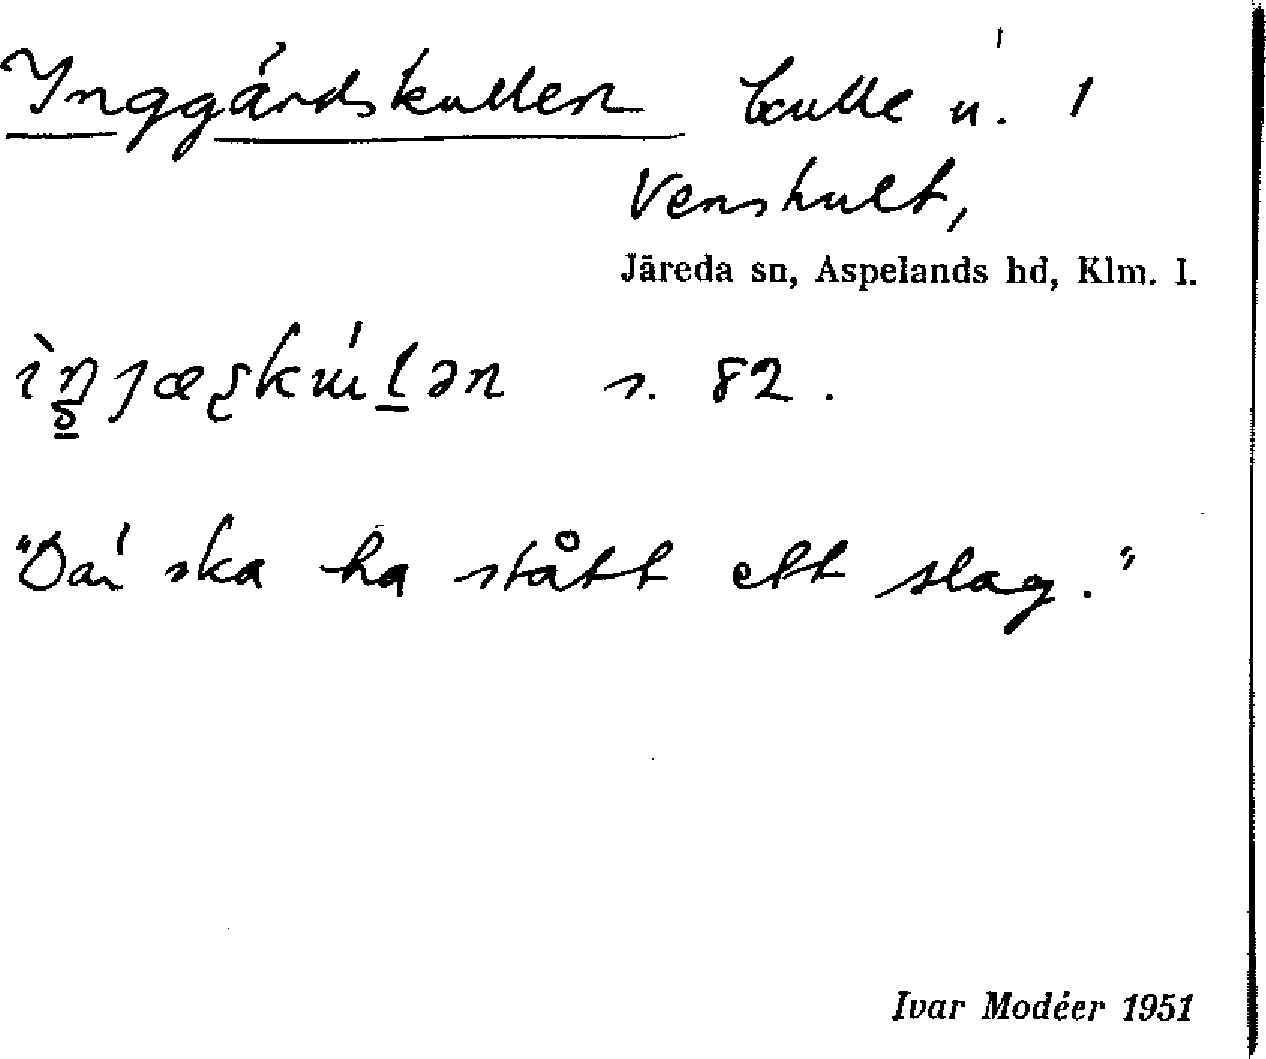 Ynggårdskullen kulle n. 1
Venshult,
Järeda sn, Aspelands hd, Klm. l.
s. 82.
"Där ska ha stått ett slag."
Ivar Modéer 1951